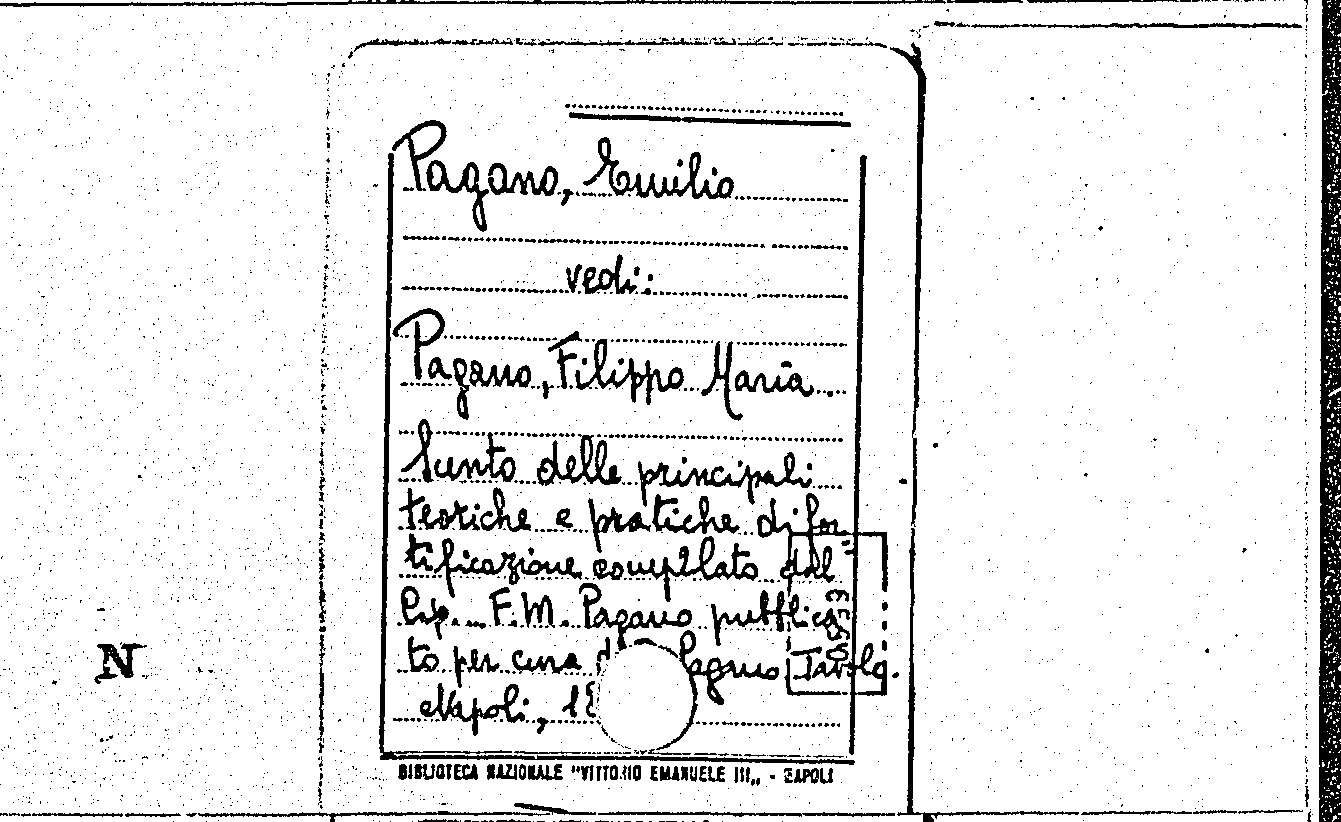 Pagano, Emilio
vedi:
Pagano, Filippo Maria.
Sunto delle principali
teoriche e pratiche di for
tificazione compilato dal
Cap. F. M. Pagano pubblica
to per cura Pagano. Tavole.
Napoli, 18
BIBLIOTECA NAZIONALE "VITTORIO EMANUELE III„ - NAPOLI
N